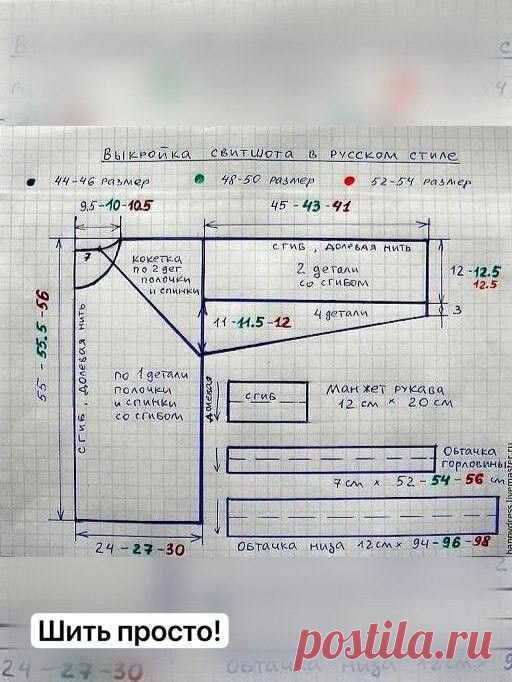 Выкройка свитшота в русском стиле
44-46 размер 48-50 размер 52-54 размер
9.5-10-10.5
45-43-41
7
кокетка
по 2 дет.
полочки
и спинки
сгиб, долевая нить
2 детали
со сгибом
12-12.5
12.5
4 детали
3
11-11.5-12
55-55.5-56
сгиб, долевая нить
по 1 детали
полочки
и спинки
со сгибом
долевая
сгиб
Манжет рукава
12 см × 20 см
Обтачка
горловины
7 см × 52-54-56 см
24-27-30
Обтачка низа 12 см × 94-96-98
happydress.livemaster.ru
Шить просто!
postila.ru
24-27-30